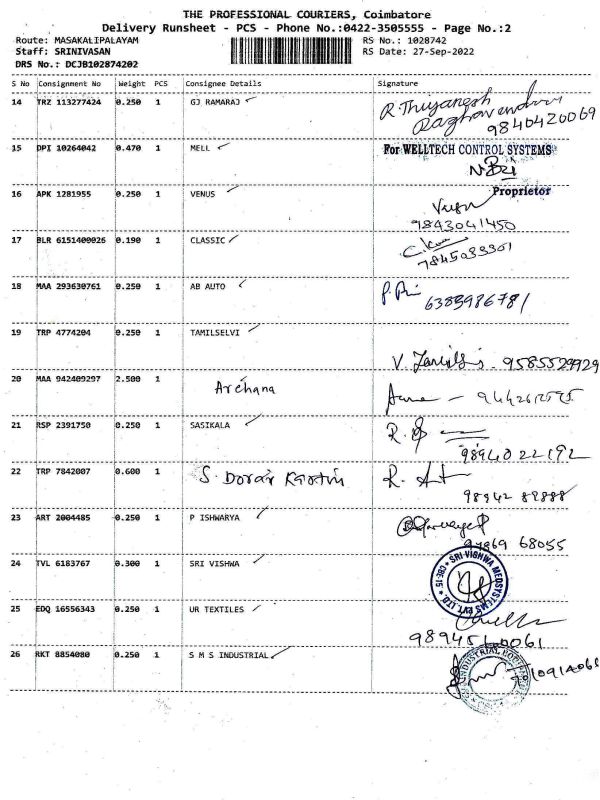 THE PROFESSIONAL COURIERS, Coimbatore
Delivery Runsheet - PCS - Phone No.:0422-3505555 - Page No.:2
Route: MASAKALIPALAYAM RS No.: 1028742
Staff: SRINIVASAN RS Date: 27-Sep-2022
DRS No.: DCJB102874202
S No Consignment No Weight PCS Consignee Details Signature
14 TRZ 113277424 0.250 1 GJ RAMARAJ R Thiyanesh
9840420069
15 DPI 10264042 0.470 1 MELL For WELLTECH CONTROL SYSTEMS
Proprietor
16 APK 1281955 0.250 1 VENUS
9843041450
17 BLR 6151400026 0.190 1 CLASSIC
7845033301
18 MAA 293630761 0.250 1 AB AUTO
6383986781
19 TRP 4774204 0.250 1 TAMILSELVI
9585529929
20 MAA 942409297 2.500 1 Archana
21 RSP 2391750 0.250 1 SASIKALA
9894022192
22 TRP 7842007 0.600 1 S. Dorai R.
98942 89888
23 ART 2004485 0.250 1 P ISHWARYA
97969 68055
24 TVL 6183767 0.300 1 SRI VISHWA SRI VISHWA MEDSYSTEMS PVT. LTD. CBE-15
25 EDQ 16556343 0.250 1 UR TEXTILES
26 RKT 8854080 0.250 1 S M S INDUSTRIAL